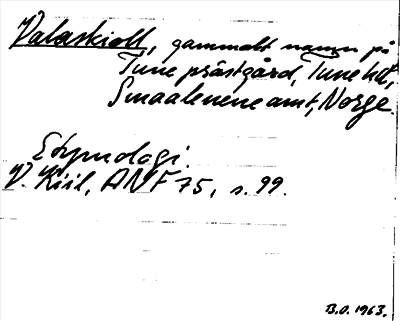 Valaskioll, gammalt namn på
Tune prästgård, Tune hd,
Smaalenene amt, Norge.
Etymologi.
V. Kiil, ANF 75, s. 99.
B.O. 1963.